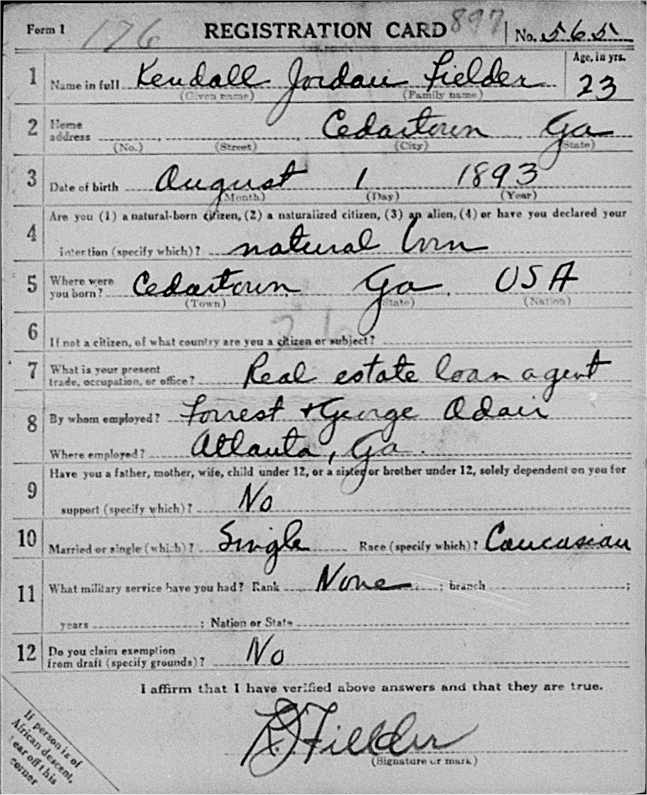 Form 1 176 REGISTRATION CARD 897 No. 565
1 Name in full Kendall Jordan Fielder Age, in yrs.
(Given name) (Family name) 23
2 Home address Cedartown Ga
(No.) (Street) (City) (State)
3 Date of birth August 1 1893
(Month) (Day) (Year)
Are you (1) a natural-born citizen, (2) a naturalized citizen, (3) an alien, (4) or have you declared your
4 intention (specify which)? natural born
5 Where were you born? Cedartown Ga. USA
(Town) (State) (Nation)
6 If not a citizen, of what country are you a citizen or subject?
7 What is your present trade, occupation, or office? Real estate loan agent
8 By whom employed? Forrest + George Adair
Where employed? Atlanta, Ga.
Have you a father, mother, wife, child under 12, or a sister or brother under 12, solely dependent on you for
9 support (specify which)? No
10 Married or single (which)? Single Race (specify which)? Caucasian
11 What military service have you had? Rank None ; branch ;
years ; Nation or State
12 Do you claim exemption from draft (specify grounds)? No
I affirm that I have verified above answers and that they are true.
KJ Fielder
(Signature or mark)
If person is of
African descent,
tear off this
corner